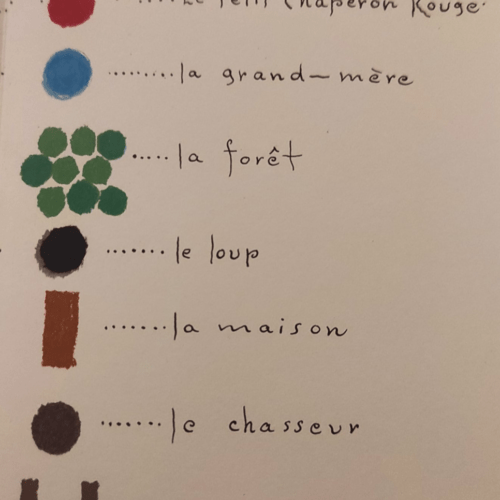 Le Petit Chaperon Rouge.
la grand-mère
la forêt
le loup
la maison
le chasseur